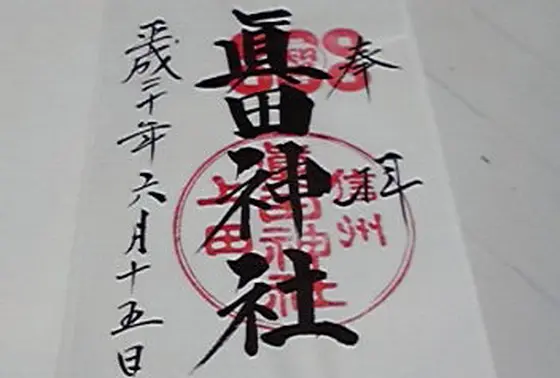 奉拝
眞田神社
信州
眞田神社
上田
平成二十年六月十五日